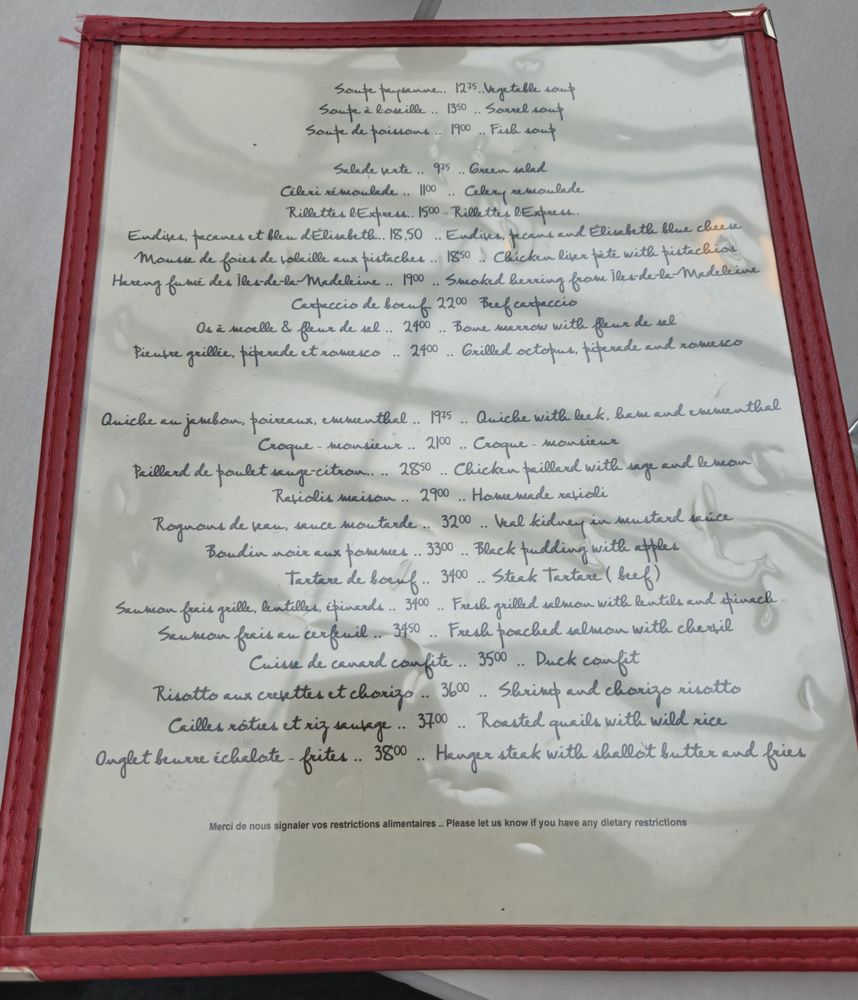 Soupe paysanne.. 12⁷⁵..Vegetable soup
Soupe à l'oseille .. 13⁵⁰ .. Sorrel soup
Soupe de poissons .. 19⁰⁰ .. Fish soup
Salade verte .. 9⁷⁵ .. Green salad
Céleri rémoulade .. 11⁰⁰ .. Celery remoulade
Rillettes l'Express.. 15⁰⁰ .. Rillettes l'Express..
Endives, pacanes et bleu d'Élisabeth.. 18,50 .. Endives, pecans and Élisabeth blue cheese
Mousse de foies de volaille aux pistaches .. 18⁵⁰ .. Chicken liver pâte with pistachios
Hareng fumé des Îles-de-la-Madeleine .. 19⁰⁰ .. Smoked herring from Îles-de-la-Madeleine
Carpaccio de boeuf 22⁰⁰ Beef carpaccio
Os à moelle & fleur de sel .. 24⁰⁰ .. Bone marrow with fleur de sel
Pieuvre grillée, piperade et romesco .. 24⁰⁰ .. Grilled octopus, piperade and romesco
Quiche au jambon, poireaux, emmenthal .. 19⁷⁵ .. Quiche with leek, ham and emmenthal
Croque - monsieur .. 21⁰⁰ .. Croque - monsieur
Paillard de poulet sauge-citron... .. 28⁵⁰ .. Chicken paillard with sage and lemon
Raviolis maison .. 29⁰⁰ .. Homemade ravioli
Rognons de veau, sauce moutarde .. 32⁰⁰ .. Veal kidney in mustard sauce
Boudin noir aux pommes .. 33⁰⁰ .. Black pudding with apples
Tartare de boeuf .. 34⁰⁰ .. Steak Tartare ( beef)
Saumon frais grille, lentilles, épinards .. 34⁰⁰ .. Fresh grilled salmon with lentils and spinach
Saumon frais au cerfeuil .. 34⁵⁰ .. Fresh poached salmon with chervil
Cuisse de canard confite .. 35⁰⁰ .. Duck confit
Risotto aux crevettes et chorizo .. 36⁰⁰ .. Shrimp and chorizo risotto
Cailles rôties et riz sauvage .. 37⁰⁰ .. Roasted quails with wild rice
Onglet beurre échalote - frites .. 38⁰⁰ .. Hanger steak with shallot butter and fries
Merci de nous signaler vos restrictions alimentaires .. Please let us know if you have any dietary restrictions